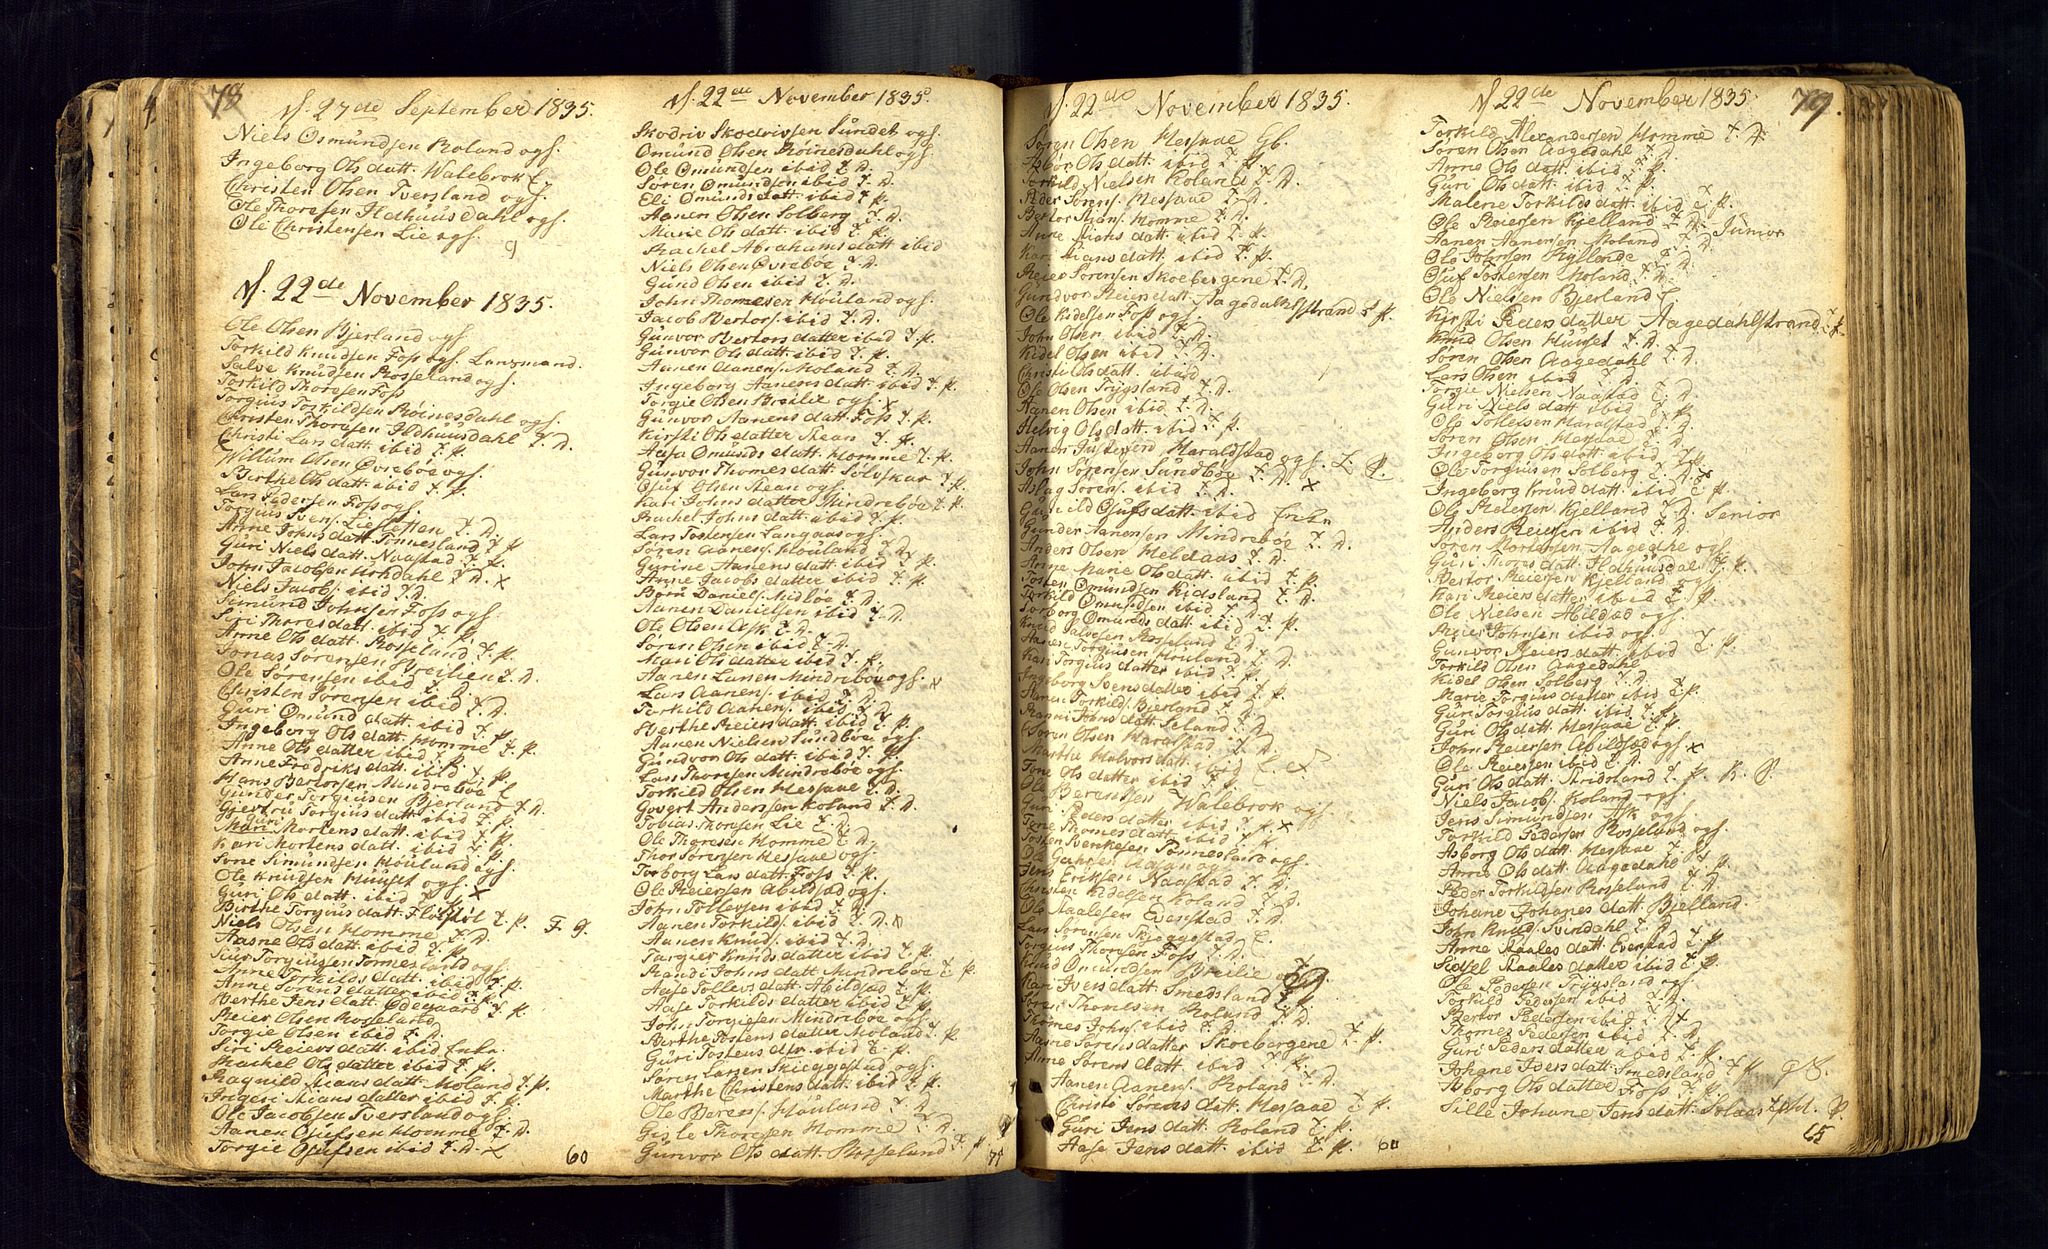 78
d. 27de September 1835.
Niels Osmundsen Roland ogs.
Ingeborg Ols datt. Walebrok E
Christen Olsen Tversland ogs.
Ole Thoresen Ildhuusdahl ogs.
Ole Christensen Lie ogs.
9
d. 22de November 1835.
Ole Olsen Bjerland ogs
Torkild Knudsen Foss ogs. Lansmand.
Salve Knudsen Rosseland ogs
Torkild Thoresen Foss
Torgius Torkildsen Röinesdahl ogs.
Christen Thoresen Ildhuusdahl T. D.
Christi Lars datt. ibid T. P.
Willum Olsen Övrebøe ogs.
Berthe Ols datt. ibid T. P.
Lars Pedersen Foss ogs.
Torgius Svens. Liesletten T. D.
Anne Johns datt. Tonnesland T. P.
Guri Niels datt. Naastad T. P.
John Jacobsen Urkdahl T. D. x
Niels Jacobs. ibid T. D.
Simund Johnsen Foss ogs
Siri Thores datt. ibid T. P.
Anne Ols datt. Rosseland T. P.
Jonas Sørensen Breilien T. D.
Ole Sørensen ibid T. D.
Christen Sørensen ibid T. D.
Guri Omund datt. ibid T. P.
Ingeborg Ols datt. Homme T. P.
Anne Ols datter ibid T. P.
Anne Fredriks datt. ibid T. P.
Hans Bertorsen Mindrebøe
Gunder Torgiusen Bjerland T. D.
Giertru Torgius datt. ibid T. P.
Guri Mortens datt. ibid T. P.
Kari Mortens datt. ibid T. P.
Tone Simundsen Houland ogs
Ole Knudsen Huuset ogs.
Guri Ols datt. ibid T. P. x
Birthe Torgius datt. T. P. F. G.
Niels Olsen Homme T. D.
Aasne Ols datt. ibid T. P.
Siur Torgiusen Tonnesland ogs
Anne Torkilds datt. ibid T. P.
Anne Sørens datter ibid T. P.
Berthe Jens datt. Ødegaard T. P.
Reier Olsen Rosseland
Torgie Olsen ibid T. D.
Siri Reiers datt. ibid Enke.
Rachel Ols datter ibid T. P.
Ragnild Aians datt. Moland T. P.
Ingeri Aians datter ibid T. P.
Ole Jacobsen Tversland ogs
Aanen Olufsen Homme T. D.
Torgie Olufsen ibid T. D. x
60
d. 22de November 1835.
Skodriv Skodrivsen Sundet ogs.
Omund Olsen Röinesdahl ogs
Ole Omundsen ibid T. D.
Søren Omundsen ibid T. D.
Eli Omunds datt. ibid T. P.
Aanen Olsen Solberg T. D.
Marie Ols datt. ibid T. P.
Rachel Abrahams datt ibid
Niels Olsen Øvrebøe T. D.
Gund Olsen ibid T. D.
John Thomesen Houland ogs.
Jacob Bertors. ibid T. D.
Gunvor Bertors datter ibid T. P.
Gunvor Ols datt. ibid T. P.
Aanen Aanens. Moland T. D.
Ingeborg Aanens datt. ibid T. P.
Torgie Olsen Breilie ogs. x
Gunvor Aanens datt. Foss T. P.
Kirsti Ols datter Aean T. P.
Aasa Omunds datt. Homme T. P.
Gunvor Thomes datt. Solvskar T. P.
Oluf Olsen Aean ogs.
Kari Johns datter Mindrebøe T. P.
Rachel Johns datt. ibid T. P.
Lars Tostensen Langaas ogs.
Søren Aanens. Houland T. D.
Gurine Aanens datt. ibid T. P.
Anne Jacobs datter ibid T. P.
Børu Daniels. Midbøe T. D.
Aanen Danielsen ibid T. D.
Ole Olsen Ask T. D.
Søren Olsen ibid T. D.
Mari Ols datter ibid T. P.
Aanen Larsen Mindrebøe ogs. x
Lars Aanens. ibid T. D.
Torkild Aanens. ibid T. D.
Berthe Reiers datt. ibid T. P.
Aanen Nielsen Sundbøe ogs.
Gundvor Ols datt. ibid T. P.
Lars Thoresen Mindrebøe ogs.
Torkild Olsen Messaae T. D.
Govert Andersen Roland T. D.
Tobias Thoresen Lie T. D.
Ole Thoresen Homme T. D.
Thor Sørensen Messaae ogs.
Torborg Lars datt. Foss T. P.
Ole Reiersen Abildsød ogs.
John Tollevsen ibid T. D.
Aanen Torkilds. ibid T. D. x
Aanen Knuds. ibid T. D.
Targier Knuds datter ibid T. P.
Randi Johns datt. Mindrebøe T. P.
Aase Tollevs datt. Abildsød T. P.
Aase Torkilds datter ibid T. P.
John Torgiesen Mindrebøe ogs.
Berthe Tostens datter Moland T. P.
Guri Tostens dtr. ibid T. P.
Søren Larsen Skieggestad ogs.
Marthe Christens datt. ibid T. P.
Ole Berens. Houland T. D.
Gisle Thoresen Homme T. D.
Gunvor Ols datt. Rosseland T. P.
d. 22de November 1835.
Søren Olsen Messaae Gb.
Asbør Ols datt. ibid T. P.
Torkild Nielsen Roland T. D.
Peder Sørens. Messaae T. D.
Bertor Aians. Homme T. D.
Anne Aians datt. ibid T. P.
Kari Aians datt. ibid T. P.
Reier Sørensen Skoebergene T. D.
Gundvor Reiers datt. Aagedahlsstrand T. P.
Ole Kidelsen Foss ogs.
John Olsen ibid T. D.
Kidel Olsen ibid T. D.
Christi Ols datt. ibid
Ole Olsen Trygsland T. D.
Aanen Olsen ibid T. D.
Helvig Ols datt. ibid T. P.
Aanen Justesen Haraldstad ogs. L. P.
John Sørensen Sundbøe T. D. x
Aslag Sørens. ibid T. D.
Gunild Olufs datt. ibid Enke
Gunder Aanonsen Mindrebøe T. D.
Anders Olsen Heldaas T. D.
Anne Mane Ols datt. ibid T. P.
Tosten Omundsen Kidsland T. D.
Torkild Omundsen ibid T. D.
Torborg Omunds datt. ibid T. P.
Knud Salvesen Rosseland T. D.
Aanen Torgiusen Houland T. D.
Kari Torgius datter ibid T. P.
Ingeborg Svens datter ibid T. P.
Aanen Torkilds. Bjerland T. D.
Ranni Ivers datt. Seland T. P.
Søren Olsen Haralstad T. D.
Marthe Halvors datt. ibid T. P.
Tone Ols datter ibid T. P.
Ole Berentsen Walebrok ogs.
Guri Peders datter ibid T. P. x
Tone Thomes datt. ibid T. P.
Tosten Svenkesen Tonnesland ogs.
Jens Eriksen Naastad T. D.
Christen Kidelsen Roland T. D.
Ole Staalesen Evenstad T. D.
Lars Sørensen Skjeggestad E.
Torgius Thoresen Foss T. D.
Knud Omundsen Breilie ogs
Kari Ivers datt. Smedsland T. P.
Søren Thomesen Roland T. D.
Thomes Johns. ibid T. D.
Aasne Sørens datter Skoebergene T. P.
Anne Sørens datt. ibid T. P.
Aanen Aanens. Roland T. D.
Christi Sørens datt. Messaae T. P.
Guri Jens datt. Roland T. P.
Aase Jens datt. ibid T. P.
60
d. 22de November 1835.
79.
Torkild Alexandersen Homme T. D.
Søren Olsen Aagedahl T. D.
Anne Ols datt. ibid T. P.
Guri Ols datt. ibid T. P.
Malene Torkilds datt. ibid T. P.
Ole Reiersen Kjelland T. D. Junior
Aanen Aanensen Moland T. D.
Ole Johnsen Kyllende T. D.
Oluf Tostensen Moland T. D.
Ole Nielsen Bjerland E
Kirsti Peders datter Aagedahlstrand T. P.
Knud Olsen Huuset T. D.
Søren Olsen Aagedahl T. D.
Lars Olsen ibid T. D.
Torgie Nielsen Naastad T. D.
Guri Niels datt. ibid T. P.
Ole Tollefsen Haralstad T. D.
Søren Olsen Messaae T. D.
Ingeborg Ols datt. ibid T. P.
Ole Torgiusen Solberg T. D.
Ingeborg Knud datt. ibid T. P.
Ole Reiersen Kjelland T. D. Senior
Anders Reiersen ibid T. D.
Søren Mortensen Aagedhl ogs
Guri Thores datt. Ildhuusdal T. P.
Bertor Reiersen Kjelland ogs.
Kari Reiers datter ibid T. P.
Ole Nielsen Abildsød ogs.
Reier Johnsen ibid ogs.
Gunvor Reiers datt. ibid T. P.
Torkild Olsen Aagedahl
Kidel Olsen Solberg T. D.
Marie Torgius datter ibid T. P.
Guri Torgius datt. ibid T. P.
Guri Ols datt. Messaae T. P.
John Reiersen Abildsød ogs x
Ole Reiersen ibid T. D.
Guri Ols datt. Stridsland T. P. K. P.
Niels Jacobs. Roland ogs
Jens Simundsen Ask ogs.
Torkild Pedersen Rosseland ogs.
Asborg Ols datt. Messaae T. P.
Anne Ols datt. Aagedahl T. P.
Peder Torkildsen Rosseland T. D.
Johane Johanes datt. Bjelland
John Knuds. Svindahl T. D.
Anne Staales datt. Evenstad T. P.
Sidsel Staales datter ibid T. P.
Ole Pedersen Trygsland ogs.
Torkild Pedersen ibid T. D.
Bertor Pedersen ibid T. D. x
Thomes Pedersen ibid T. D.
Guri Peders datter ibid T. P.
Johane Ivers datt. Smedsland T. P.
Asborg Ols datter Foss T. P.
Sille Johane Jens datt. Solaas
65